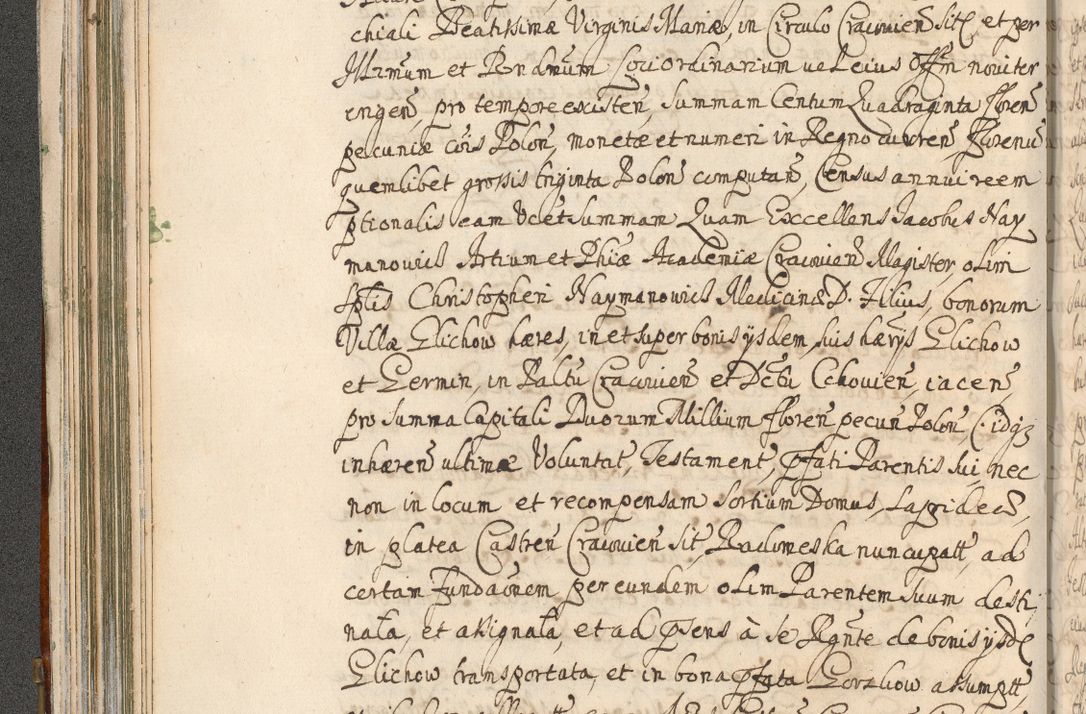 chiali Beatissimæ Virginis Mariæ, in Circulo Cracovien̄ sit̄, et per
Illr̄mum et Rn̄dmum Loci ordinarium vel eius Off̄n noviter
erigen̄, pro tempore existen̄, summam Centum Quadraginta floren̄
pecuniæ cōis Polon̄, monetæ et numeri in Regno curren̄, florenū
quemlibet grossis triginta Polon̄ computan̄, Census annui reem
ptionalis eam vc̄et summam Quam Excellens Jacobus Nay
manovich Artium et Phīæ Academiæ Cracovien̄ Magister, olim
Sp̄lis Christopheri Naymanovich Medicinæ D. Filius, bonorum
Villæ Glichow hæres, in et super bonis ysdem, suis hærys Glichow
et Germin, in Palt̄u Cracovien̄ et Dc̄tu Cchovien̄, iacen̄,
pro summa Capitali Duorum Millium floren̄ pecun̄ Polon̄, Cidq3
inhæren̄ ultimæ Voluntat̄, Testament̄, p̄fati Parentis sui, nec
non in locum et recompensam sortium Domus, Lapideæ,
in platea Castren̄ Cracovien̄ sit̄, Radomeska nuncupatt̄, ad
certam fundaōnem per eundem olim Parentem suum desti,
nata, et assignata, et ad p̄sens à se Rḡnte de bonis ysd̄
Glichow transportata, et in bona p̄fata Gorzkow assumptt̄,